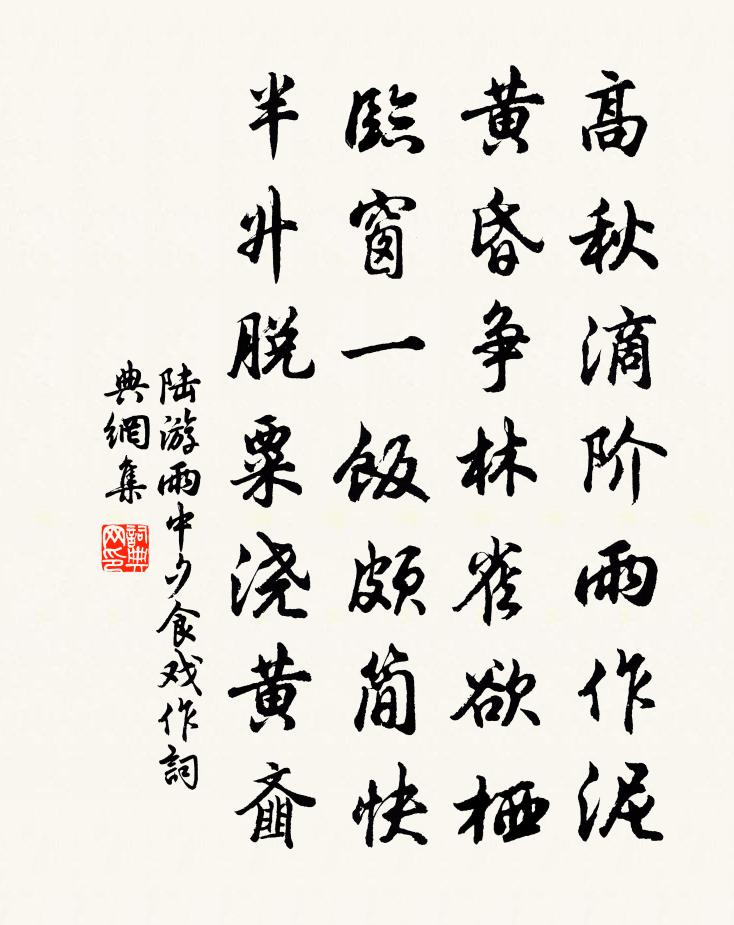 髙秋滴阶雨作泥
黄昏争林雀欲栖
臨窗一飯頗简快
半升脱粟浇黄齑
陆游雨中夕食戏作詞
典網集
詞典
网印